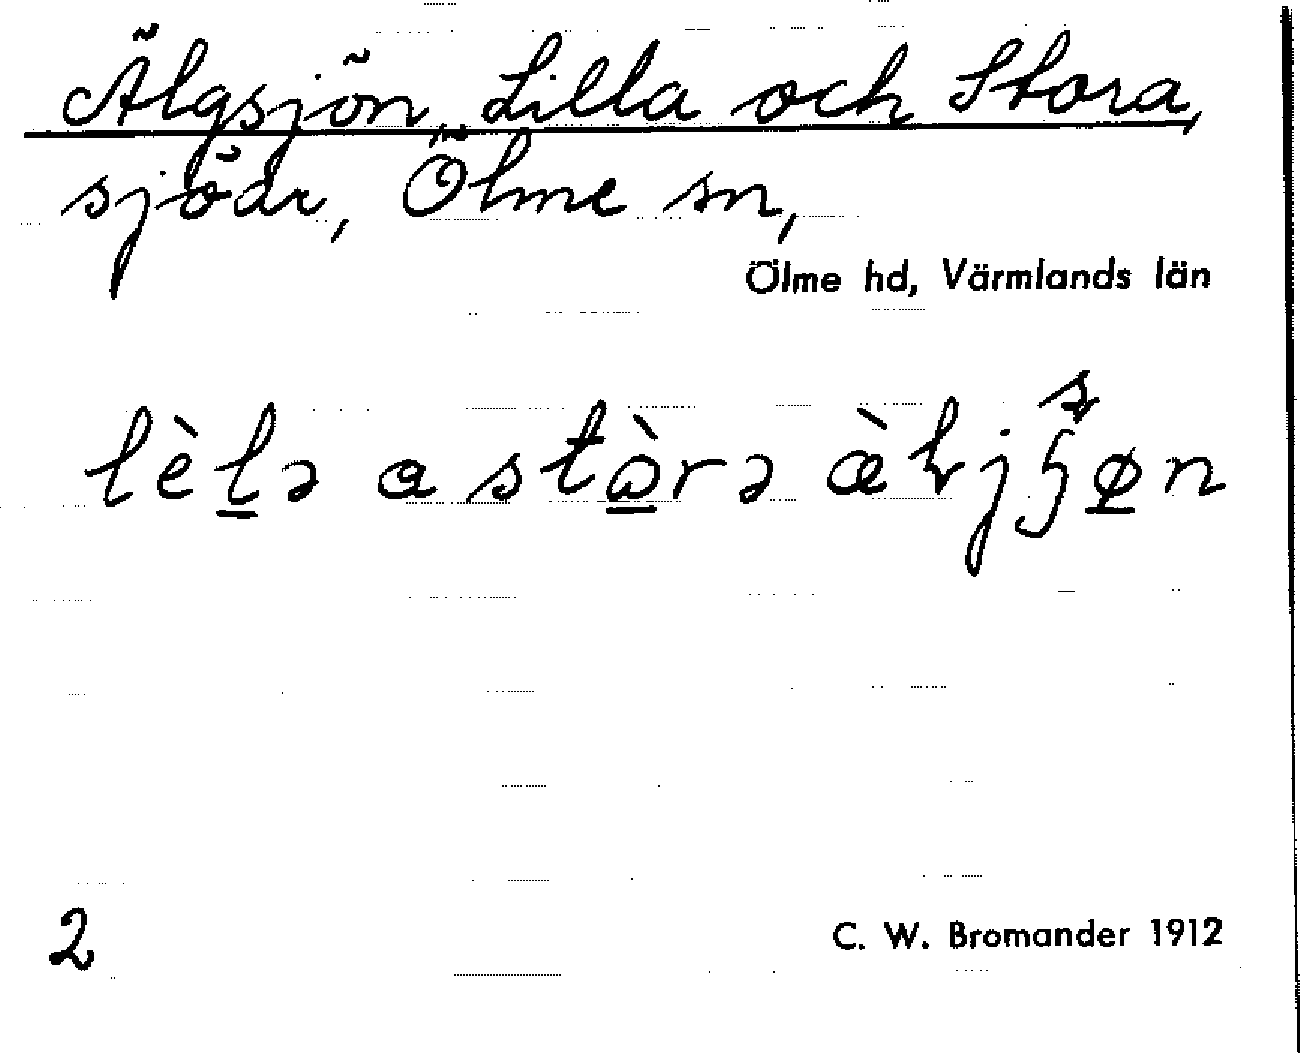 Älgsjön, Lilla och Stora,
sjöar, Ölme sn,
Ölme hd, Värmlands län
lèlə a stòrə æ̀ljʂøn
2
C. W. Bromander 1912